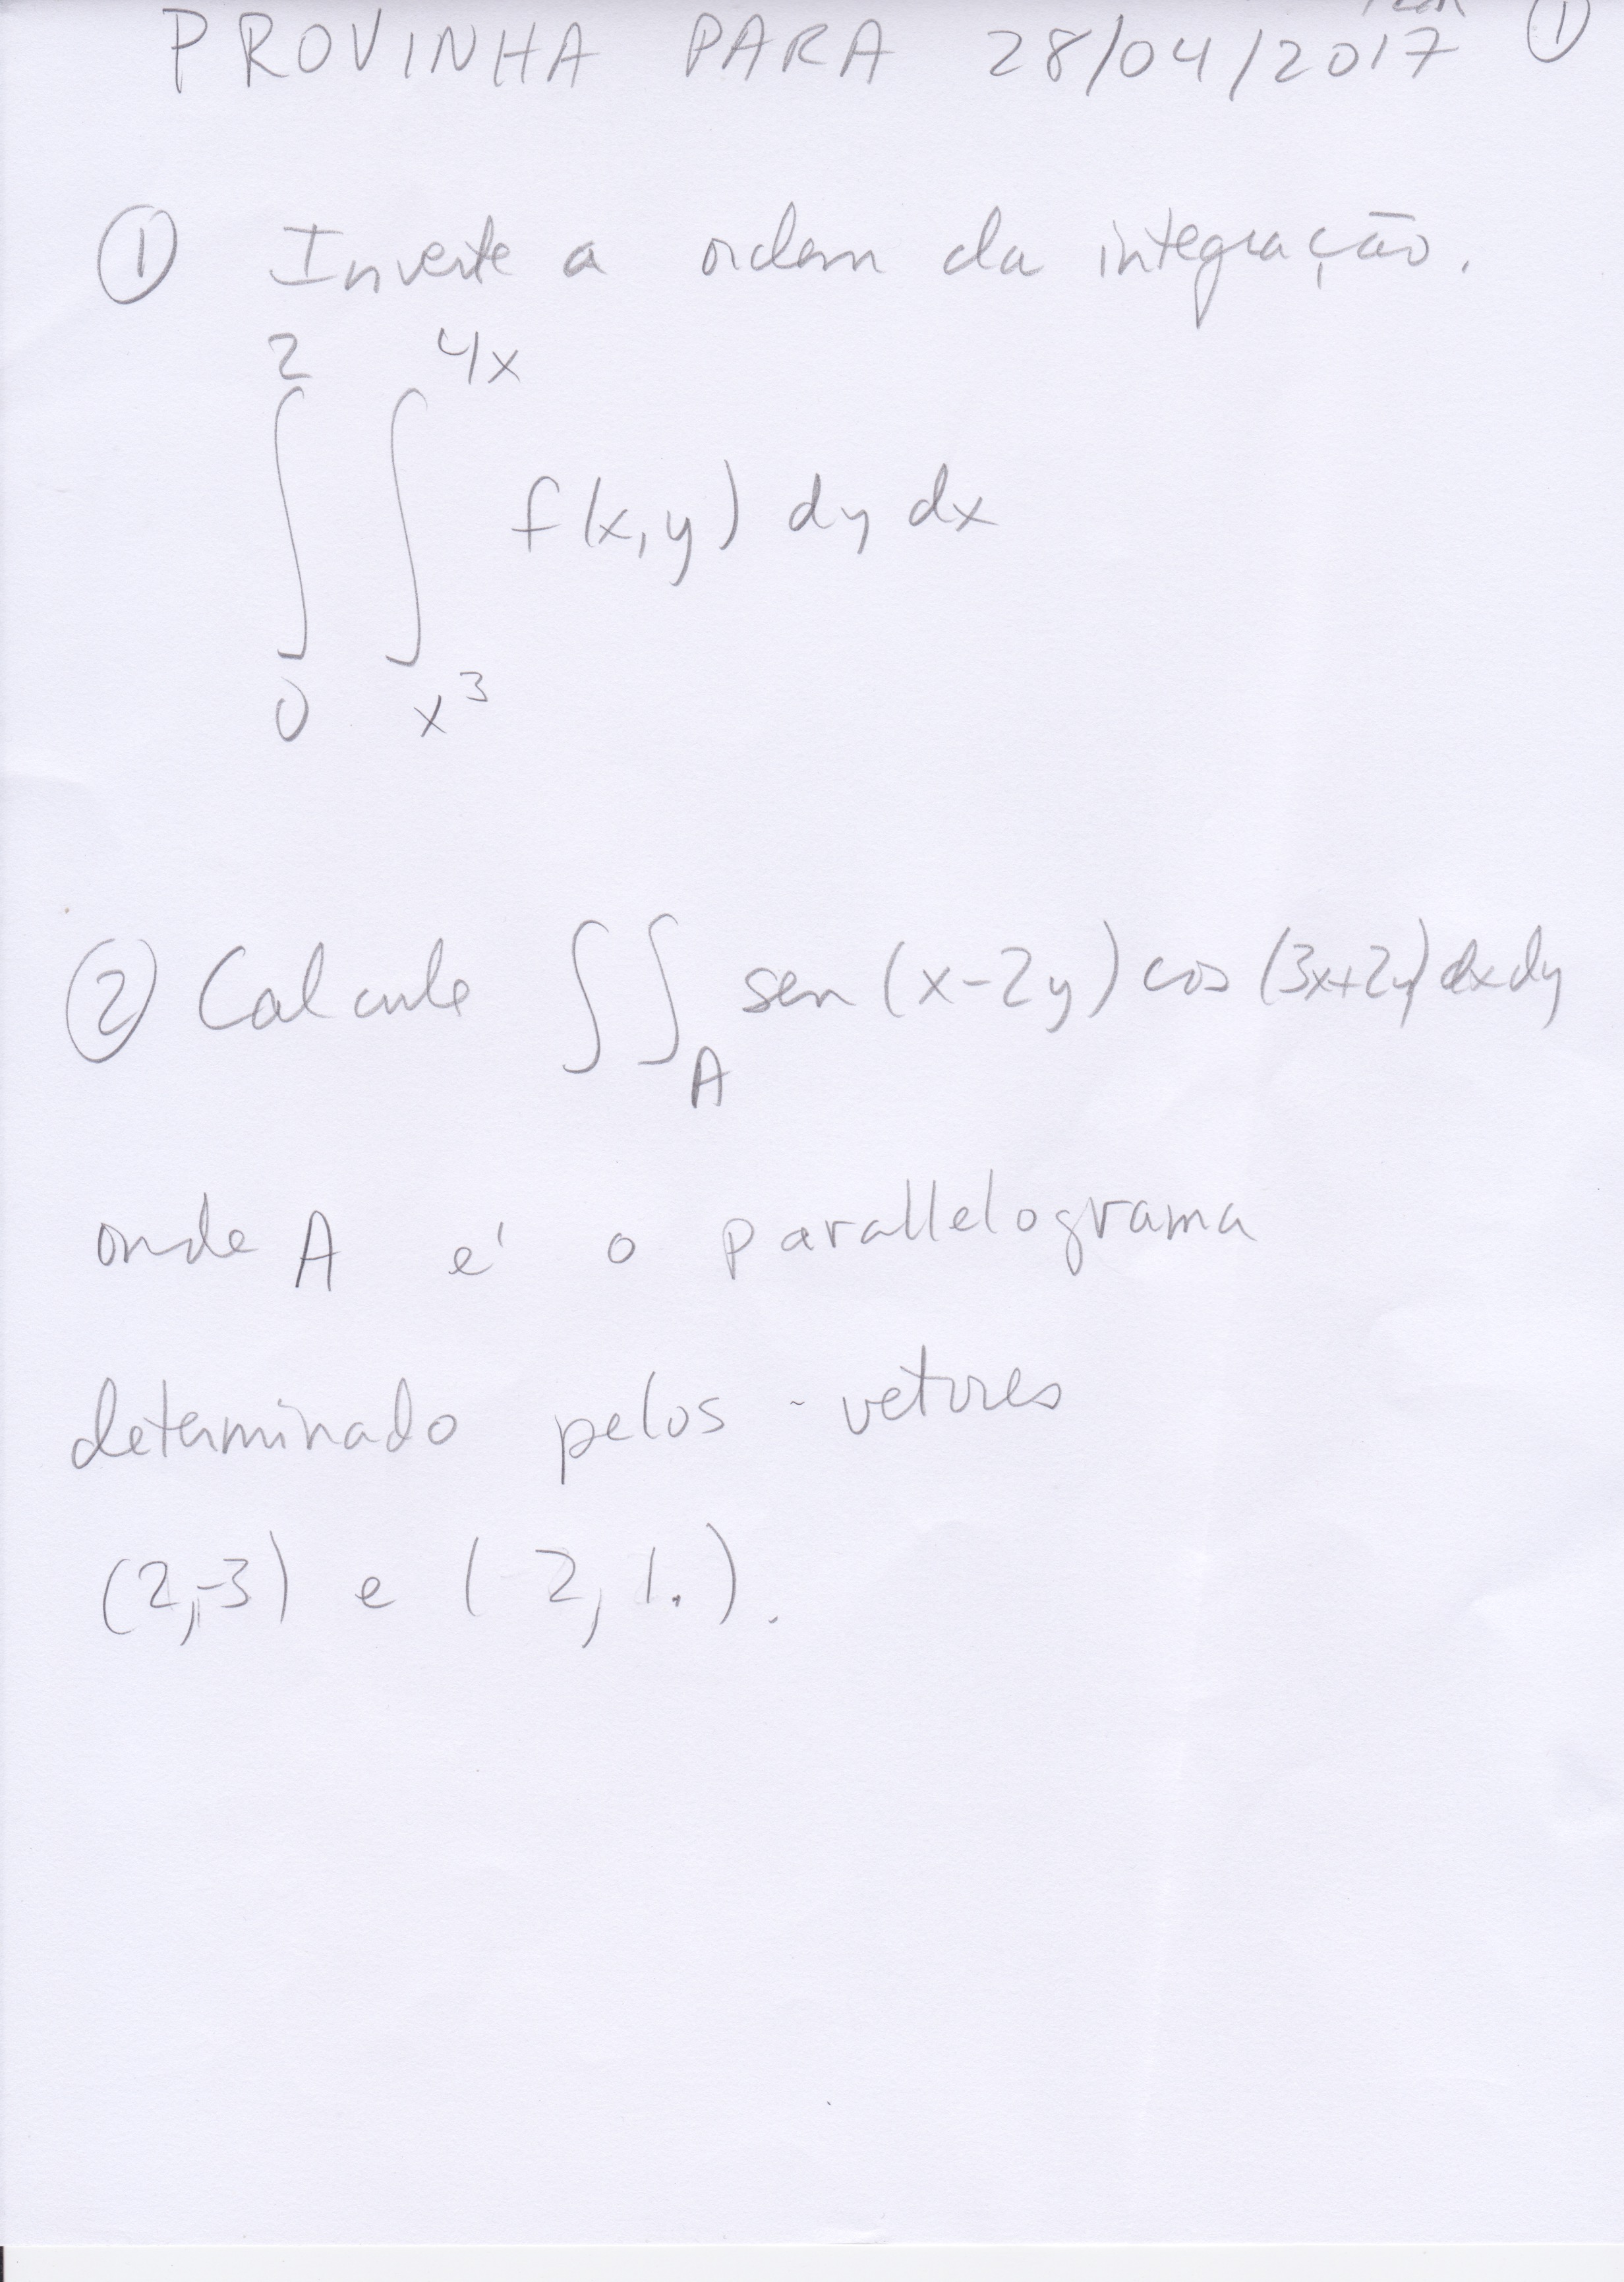 PROVINHA PARA 28/04/2017 ①
① Inverte a ordem da integração.
2 4x
∫ ∫ f(x,y) dy dx
0 x³
② Calcule ∫∫_A sen (x-2y) cos (3x+2y) dx dy
onde A é o parallelograma
determinado pelos vetores
(2,-3) e (2, 1.).